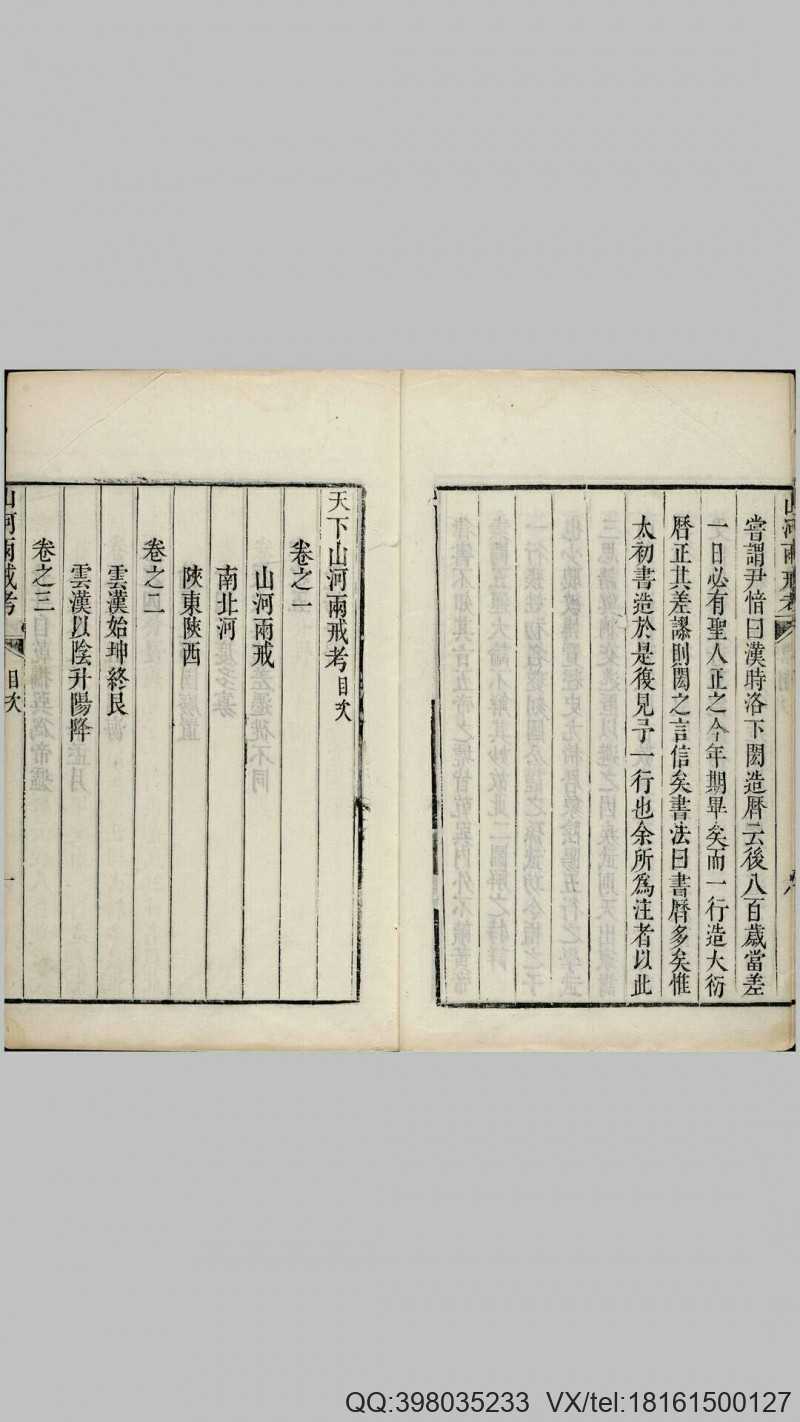 嘗謂尹愔曰漢時洛下閎造曆云後八百歲當差
一日必有聖人正之今年期畢矣而一行造大衍
曆正其差謬則閎之言信矣書法曰書曆多矣惟
太初書造於是復見予一行也余所為注者以此
天下山河兩戒考目次
卷之一
山河兩戒
南北河
陝東陝西
卷之二
雲漢始坤終艮
雲漢以陰升陽降
卷之三
山河兩戒考 目次 一
QQ:398035233 VX/tel:18161500127